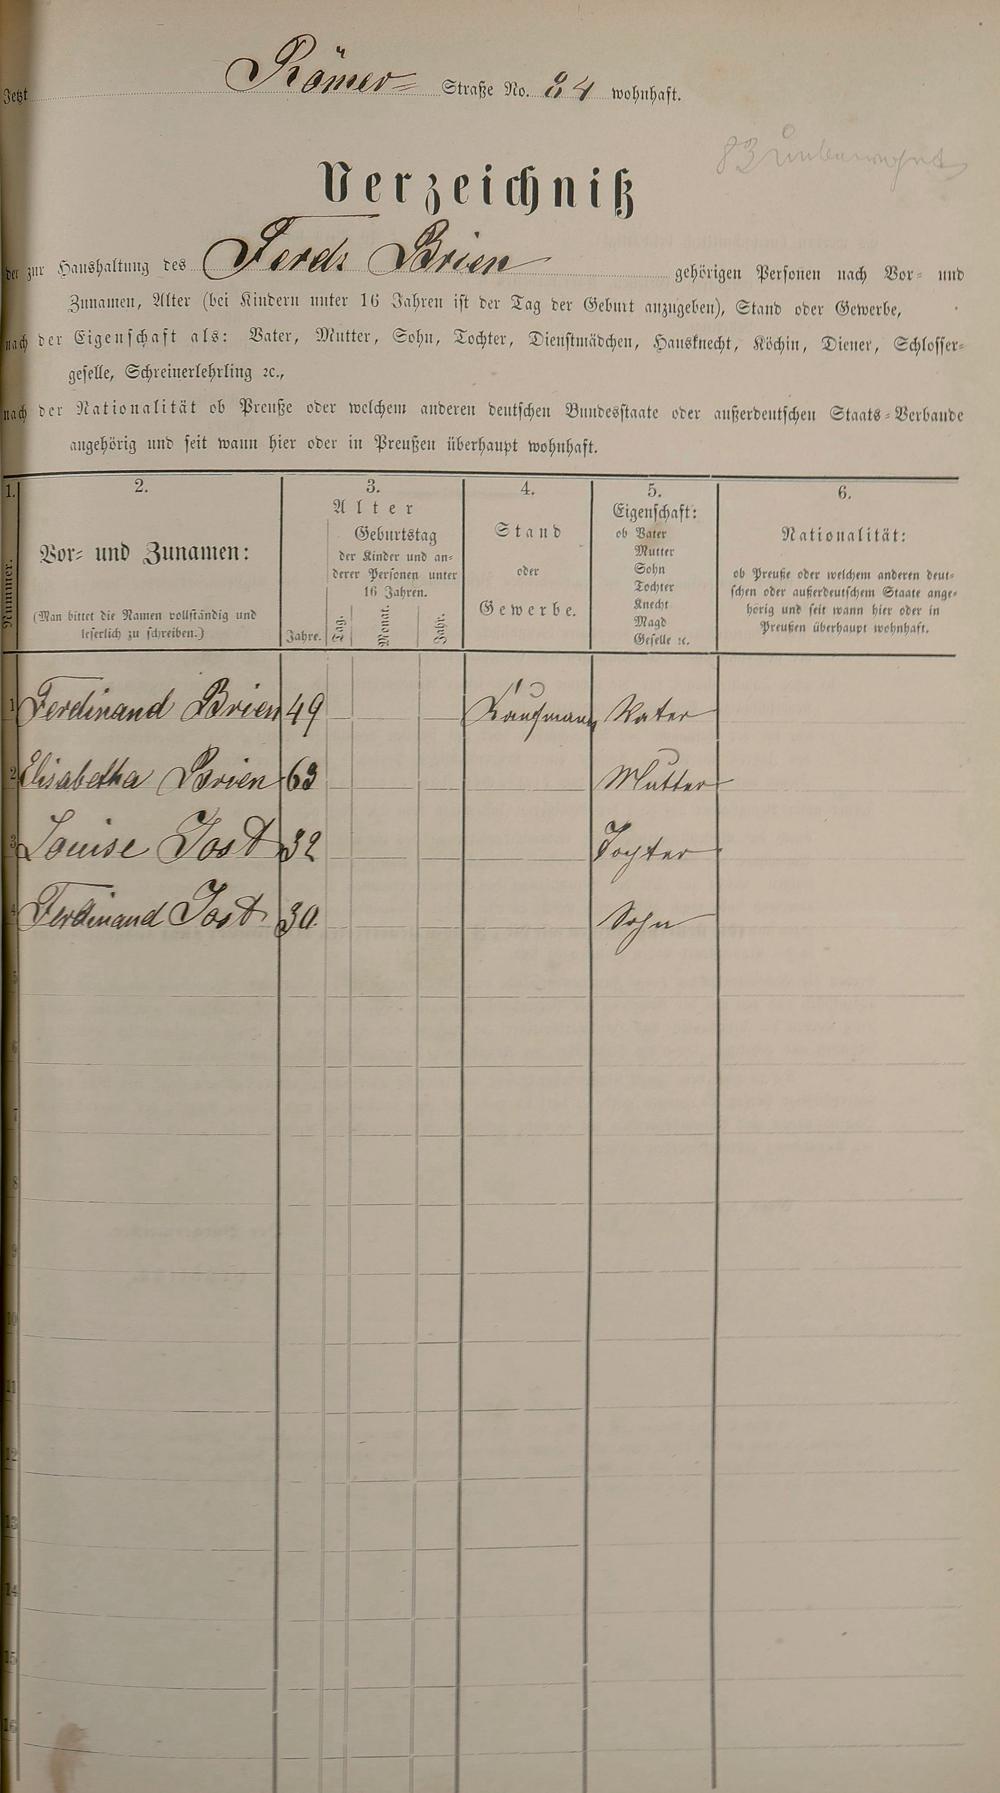 Jetzt Römer= Straße No. 84 wohnhaft.
83 unbewohnt
Verzeichniß
der zur Haushaltung des Ferd: Brien gehörigen Personen nach Vor= und
Zunamen, Alter (bei Kindern unter 16 Jahren ist der Tag der Geburt anzugeben), Stand oder Gewerbe,
nach der Eigenschaft als: Vater, Mutter, Sohn, Tochter, Dienstmädchen, Hausknecht, Köchin, Diener, Schlosser=
geselle, Schreinerlehrling ꝛc.,
nach der Nationalität ob Preuße oder welchem anderen deutschen Bundesstaate oder außerdeutschen Staats=Verbande
angehörig und seit wann hier oder in Preußen überhaupt wohnhaft.
1. 2. 3. 4. 5. 6.
Nummer.
Vor= und Zunamen:
(Man bittet die Namen vollständig und
leserlich zu schreiben.)
Alter
Jahre.
Geburtstag
der Kinder und an=
derer Personen unter
16 Jahren.
Tag. Monat. Jahr.
Stand
oder
Gewerbe.
Eigenschaft:
ob Vater
Mutter
Sohn
Tochter
Knecht
Magd
Geselle ꝛc.
Nationalität:
ob Preuße oder welchem anderen deut=
schen oder außerdeutschem Staate ange=
hörig und seit wann hier oder in
Preußen überhaupt wohnhaft.
1 Ferdinand Brien 49 Kaufmann Vater
2 Elisabetha Brien 63 Mutter
3 Louise Jost 32 Tochter
4 Ferdinand Jost 30 Sohn
5
6
7
8
9
10
11
12
13
14
15
16